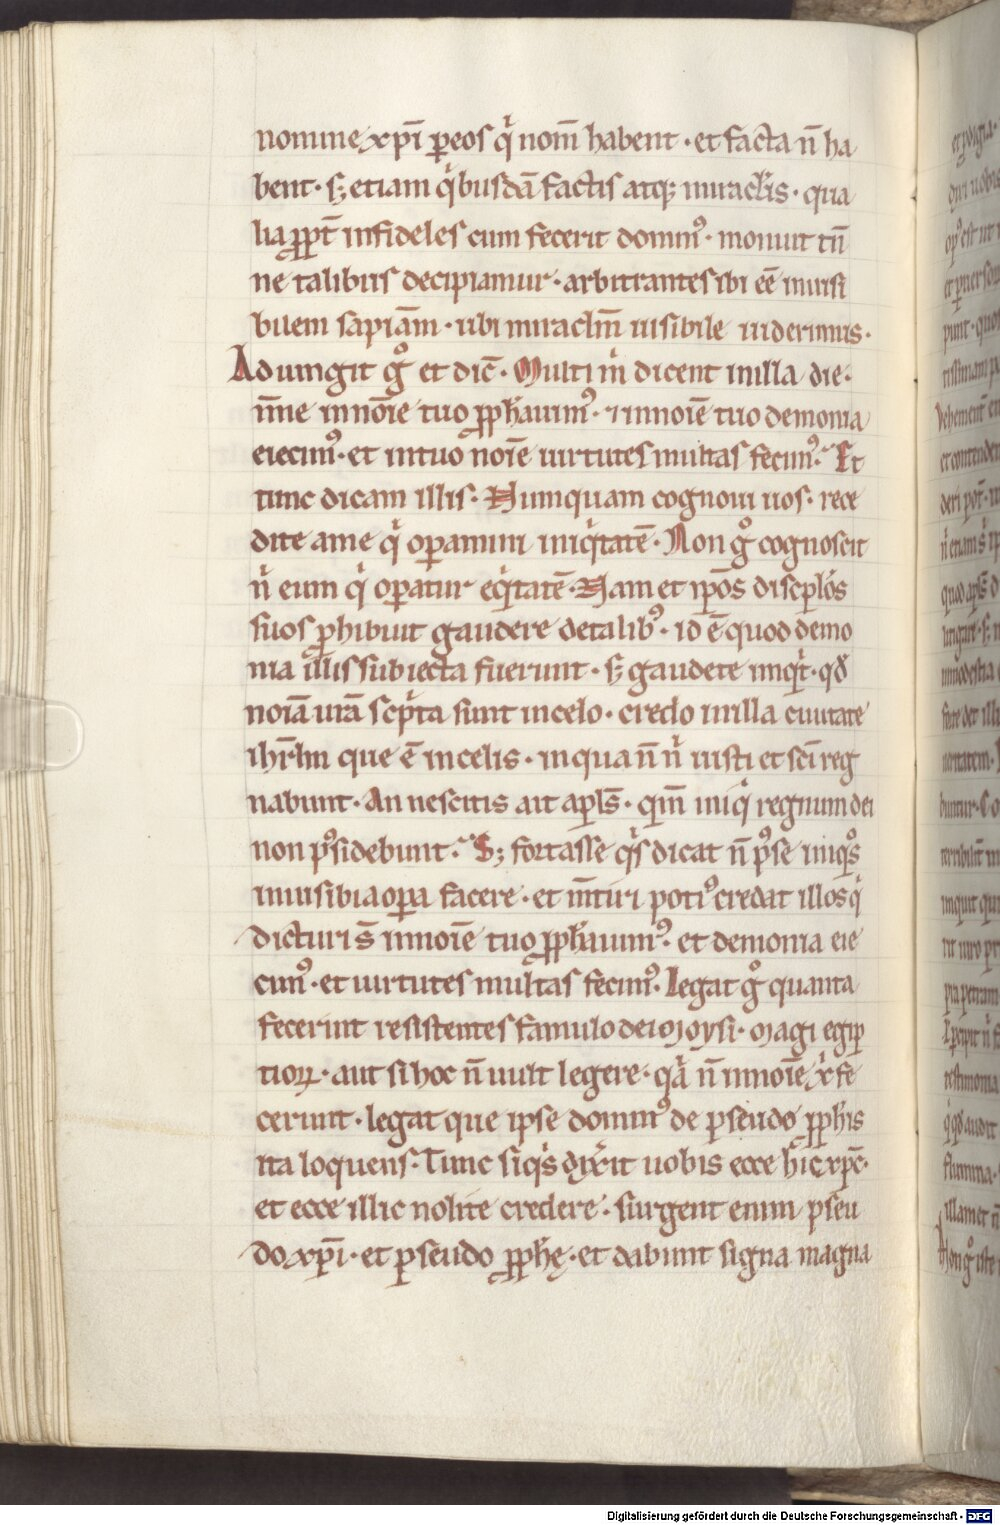 nomine xp̄i peos qͥ nom̄ habent · et facta n̄ ha
bent · sꝫ etiam qͥbusdā factis atqꝫ miraclis · qua
lia ꝓpt̄ infideles cum fecerit domin᷒ · monuit tn̄
ne talibus decipiamur · arbitrantes ibi eē inuisi
bilem sapiām · ubi miraclm̄ uisibile uiderimus ·
Adiungit gͦ et dic̄ · Multi m̄ dicent in illa die ·
d̄ne in noīe tuo ꝓphauim᷒ · ⁊ in noīe tuo demonia
eiecim᷒ · et in tuo noīe uirtutes multas fecim᷒ · Et
tunc dicam illis · Numquam cognoui uos · rece
dite a me qͥ operamini iniqͥtatē · Non gͦ cognoscit
nͥ eum qͥ operatur eqͥtatē · Nam et ip̄os discip̄los
suos ꝓhibuit gaudere de talib᷒ · id ē quod demo
nia illis subiecta fuerint · sꝫ gaudete inqͥt · qd̄
noīa urā scͥpta sunt in celo · credo in illa ciuitate
ihrl̄m que ē in celis · in qua n̄ nͥ iusti et sc̄i reg
nabunt · An nescitis ait apl̄s · qm̄ iniqͥ regnum dei
non p᷒sidebunt · Sꝫ fortasse qͥs dicat n̄ p᷒sē iniqͦs
inuisibia opera facere · et m̄tiri poti᷒ credat illos qͥ
dicturi s̄ in noīe tuo ꝓphauim᷒ · et demonia eie
cim᷒ · et uirtutes multas fecim᷒ · Legat gͦ quanta
fecerint resistentes famulo dei Moysi · Magi egip
tioꝝ · aut si hoc n̄ uult legere · qͣ n̄ in noīe x̄ fe
cerunt · legat que ipse domin᷒ de pseudo ꝓphis
ita loquens · Tunc siqͥs dixͥit uobis ecce hic xpc̄ ·
et ecce illic nolite credere · surgent enim pseu
do xp̄i · et pseudo ꝓphę · et dabunt signa magna
Digitalisierung gefördert durch die Deutsche Forschungsgemeinschaft - DFG